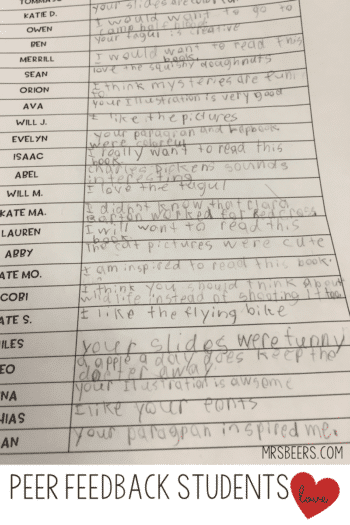 TOMMASO
your slides are
KATIE D.
I would want to go to
camp half blood
OWEN
your tagul is creative
BEN
I would want to read this
book.
MERRILL
love the squishy doughnuts
SEAN
I think mysteries are fun
to
ORION
your Illustration is very good
AVA
I like the pictures
WILL J.
your paragran and
were colorful
EVELYN
I really want to read this
book
ISAAC
Charles Dickens sounds
interesting
ABEL
I love the tagul
WILL M.
I didn't know that Clara
Barton worked for Redcross
KATE MA.
I will want to read this
book
LAUREN
The cat pictures were cute
ABBY
I am inspired to read this book.
ATE MO.
I think you should think about
wild life instead of shouting
COBI
I like the flying bike
ATE S.
your slides were funny
ILES
a apple a day does keep the
docter away
EO
your Illustration is awsome
NA
I like your fonts
HIAS
your paragpan inspired me.
AN
MRSBEERS.COM
PEER FEEDBACK STUDENTS love